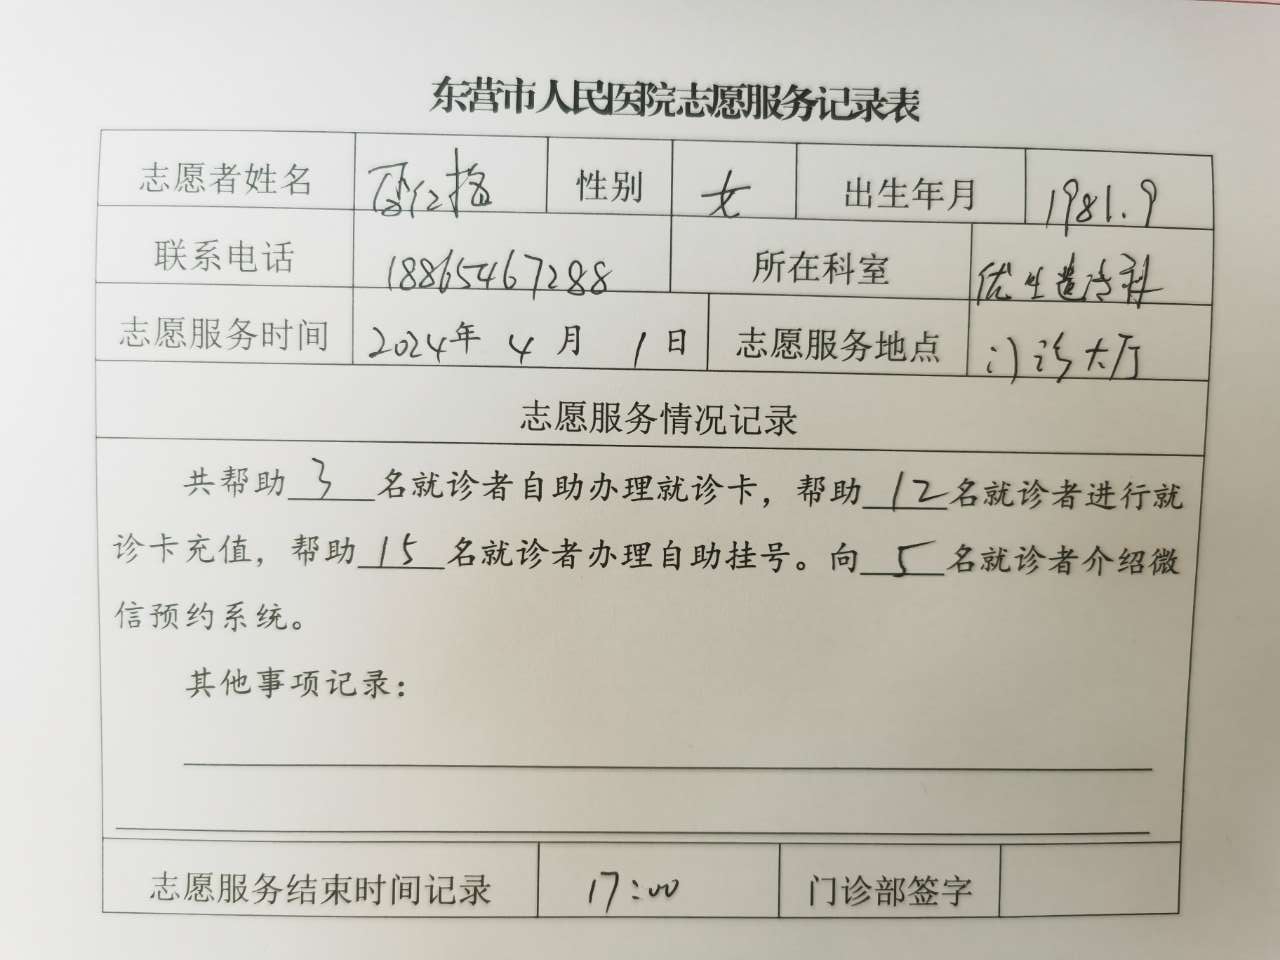 东营市人民医院志愿服务记录表
志愿者姓名 性别 女 出生年月 1981.9
联系电话 18865467288 所在科室 优生遗传科
志愿服务时间 2024年 4月 1日 志愿服务地点 门诊大厅
志愿服务情况记录
共帮助 3 名就诊者自助办理就诊卡，帮助 12 名就诊者进行就
诊卡充值，帮助 15 名就诊者办理自助挂号。向 5 名就诊者介绍微
信预约系统。
其他事项记录：
志愿服务结束时间记录 17:00 门诊部签字